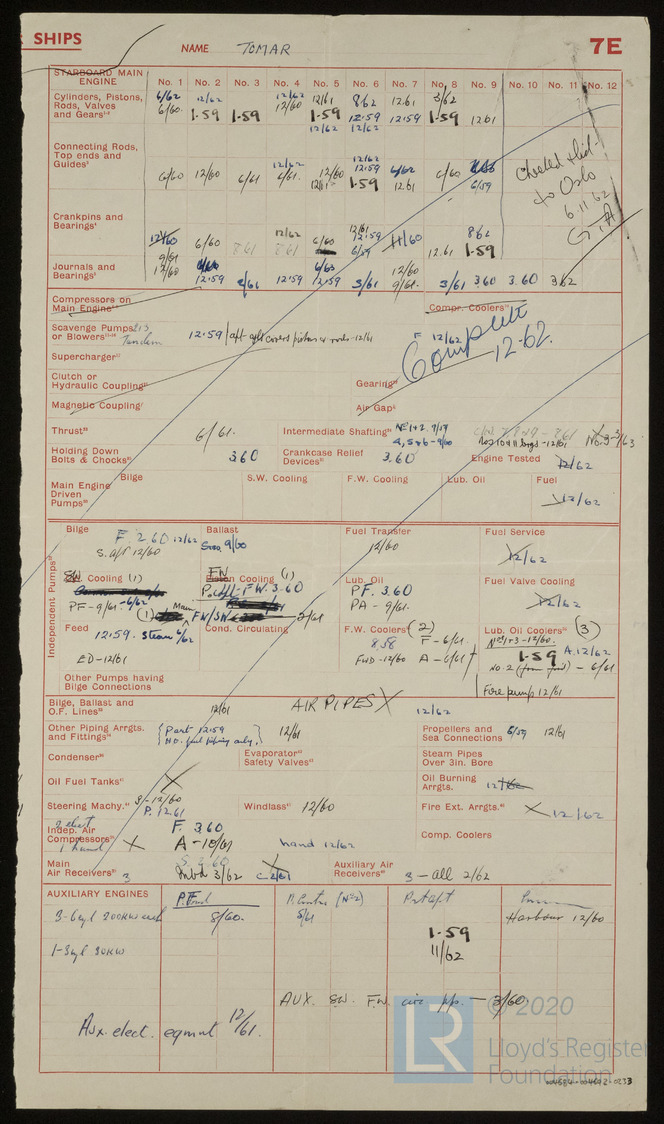 SHIPS
NAME TOMAR 7E
STARBOARD MAIN ENGINE No. 1 No. 2 No. 3 No. 4 No. 5 No. 6 No. 7 No. 8 No. 9 No. 10 No. 11 No. 12
Cylinders, Pistons, 6/62 12/62 12/62 12/61 8/62 12.61 3/62
Rods, Valves 6/60 1.59 1.59 12/60 1.59 12.59 12.59 1.59 12.61
and Gears 12/62 12/62
Connecting Rods, 12/62
Top ends and 12/62 12.59
Guides 6/60 12/60 6/61 6/61. 12/60 1.59 12.61 6/60 6/59
Checked Hid-
to Oslo
6.11.62
G.A
Crankpins and 12/61
Bearings 12/60 6/60 12/62 6/60 12.59 11/60 12.61 8.62
9/61 8.61 8.61 6/59 1.59
Journals and 12/60 6/63 12/60
Bearings 12.59 2/61 12.59 12.59 3/61 9/61. 3/61 3.60 3.60 3.62
Compressors on
Main Engine
Compr. Coolers
F 12/62
Scavenge Pumps
or Blowers Tandem 12.59
Complete
12.62.
Supercharger
Clutch or
Hydraulic Coupling
Gearing
Magnetic Coupling
Air Gap
Thrust 6/61.
Intermediate Shafting No 1+2. 9/59
4, 5 & 6 - 9/60
No 10 & 11 brgs - 12/61
Holding Down
Bolts & Chocks 3.60
Crankcase Relief
Devices 3.60
Engine Tested 12/62
Main Engine
Driven
Pumps
Bilge
S.W. Cooling
F.W. Cooling
Lub. Oil
Fuel
12/62
Independent Pumps
Bilge F. 2.60 12/62
S. aft 12/60
Ballast
9/60
Fuel Transfer
12/60
Fuel Service
12/62
SW Cooling (1)
PF - 9/61 - 6/62
FW
Cooling (1)
F.W. 3.60
FW/SW 2/61
Lub. Oil
PF. 3.60
PA - 9/61.
Fuel Valve Cooling
12/62
(1) Main
Feed
12.59. Steam 6/62
ED - 12/61
Cond. Circulating
F.W. Coolers (2)
8.58 F - 6/61.
FWD - 12/60 A - 6/61
Lub. Oil Coolers (3)
No 1+3 - 12/60.
1.59 A. 12/62
No. 2 - 6/61
Other Pumps having
Bilge Connections
Fire pump 12/61
Bilge, Ballast and
O.F. Lines 12/61
AIR PIPES X
12/62
Other Piping Arrgts.
and Fittings
Part 12.59
No. fuel piping only.
12/61
Propellers and
Sea Connections 6/59 12/61
Condenser
Evaporator
Safety Valves
Steam Pipes
Over 3in. Bore
Oil Fuel Tanks X
Oil Burning
Arrgts.
Steering Machy. S - 12/60
P. 12.61
Windlass 12/60
Fire Ext. Arrgts. X 12/62
2 elect
Indep. Air
Compressors
1 hand X
F. 3.60
A - 10/61
hand 12/62
Comp. Coolers
Main
Air Receivers 3
S. 2.60
Mbd 3/62 C - 2/61
Auxiliary Air
Receivers 3 - all 2/62
AUXILIARY ENGINES
P. Ford P. Centre (No 2) Pt Aft
3 - 6cyl 200KW each 8/60. 5/61 Harbour 12/60
1.59
11/62
1 - 3cyl 30KW
AUX. SW. FW. circ pps. - 3/60
Aux. elect. eqmnt 12/61.
LR
© 2020
Lloyd's Register
Foundation